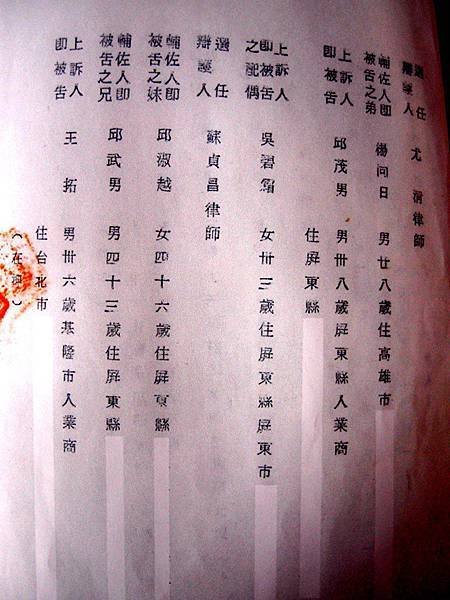 選任辯護人 尤清律師
輔佐人即被告之弟 楊問日 男廿八歲住高雄市
上訴人即被告 邱茂男 男卅八歲屏東縣人業商
住屏東縣
上訴人即被告之配偶 吳 女卅三歲住屏東縣屏東市
選任辯護人 蘇貞昌律師
輔佐人即被告之妹 邱淑越 女四十六歲住屏東縣
輔佐人即被告之兄 邱武男 男四十三歲住屏東縣
上訴人即被告 王拓 男卅六歲基隆市人業商
住台北市